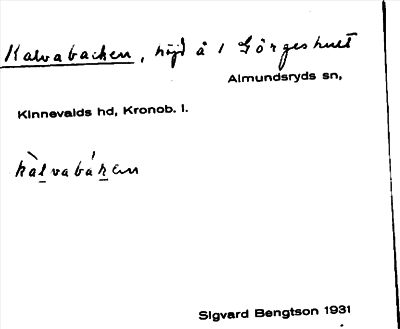 Kalvabacken, höjd å 1 Görgeshult
Almundsryds sn,
Kinnevalds hd, Kronob. l.
kàlvabákan
Sigvard Bengtson 1931